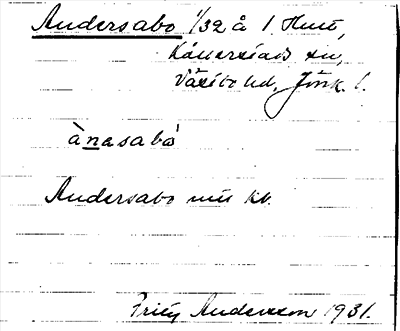 Andersabo 1/32 å 1 Hult,
Källeryds sn,
Västbo hd, Jönk. l.
ànasabó
Andersabo
Andersson 1931.